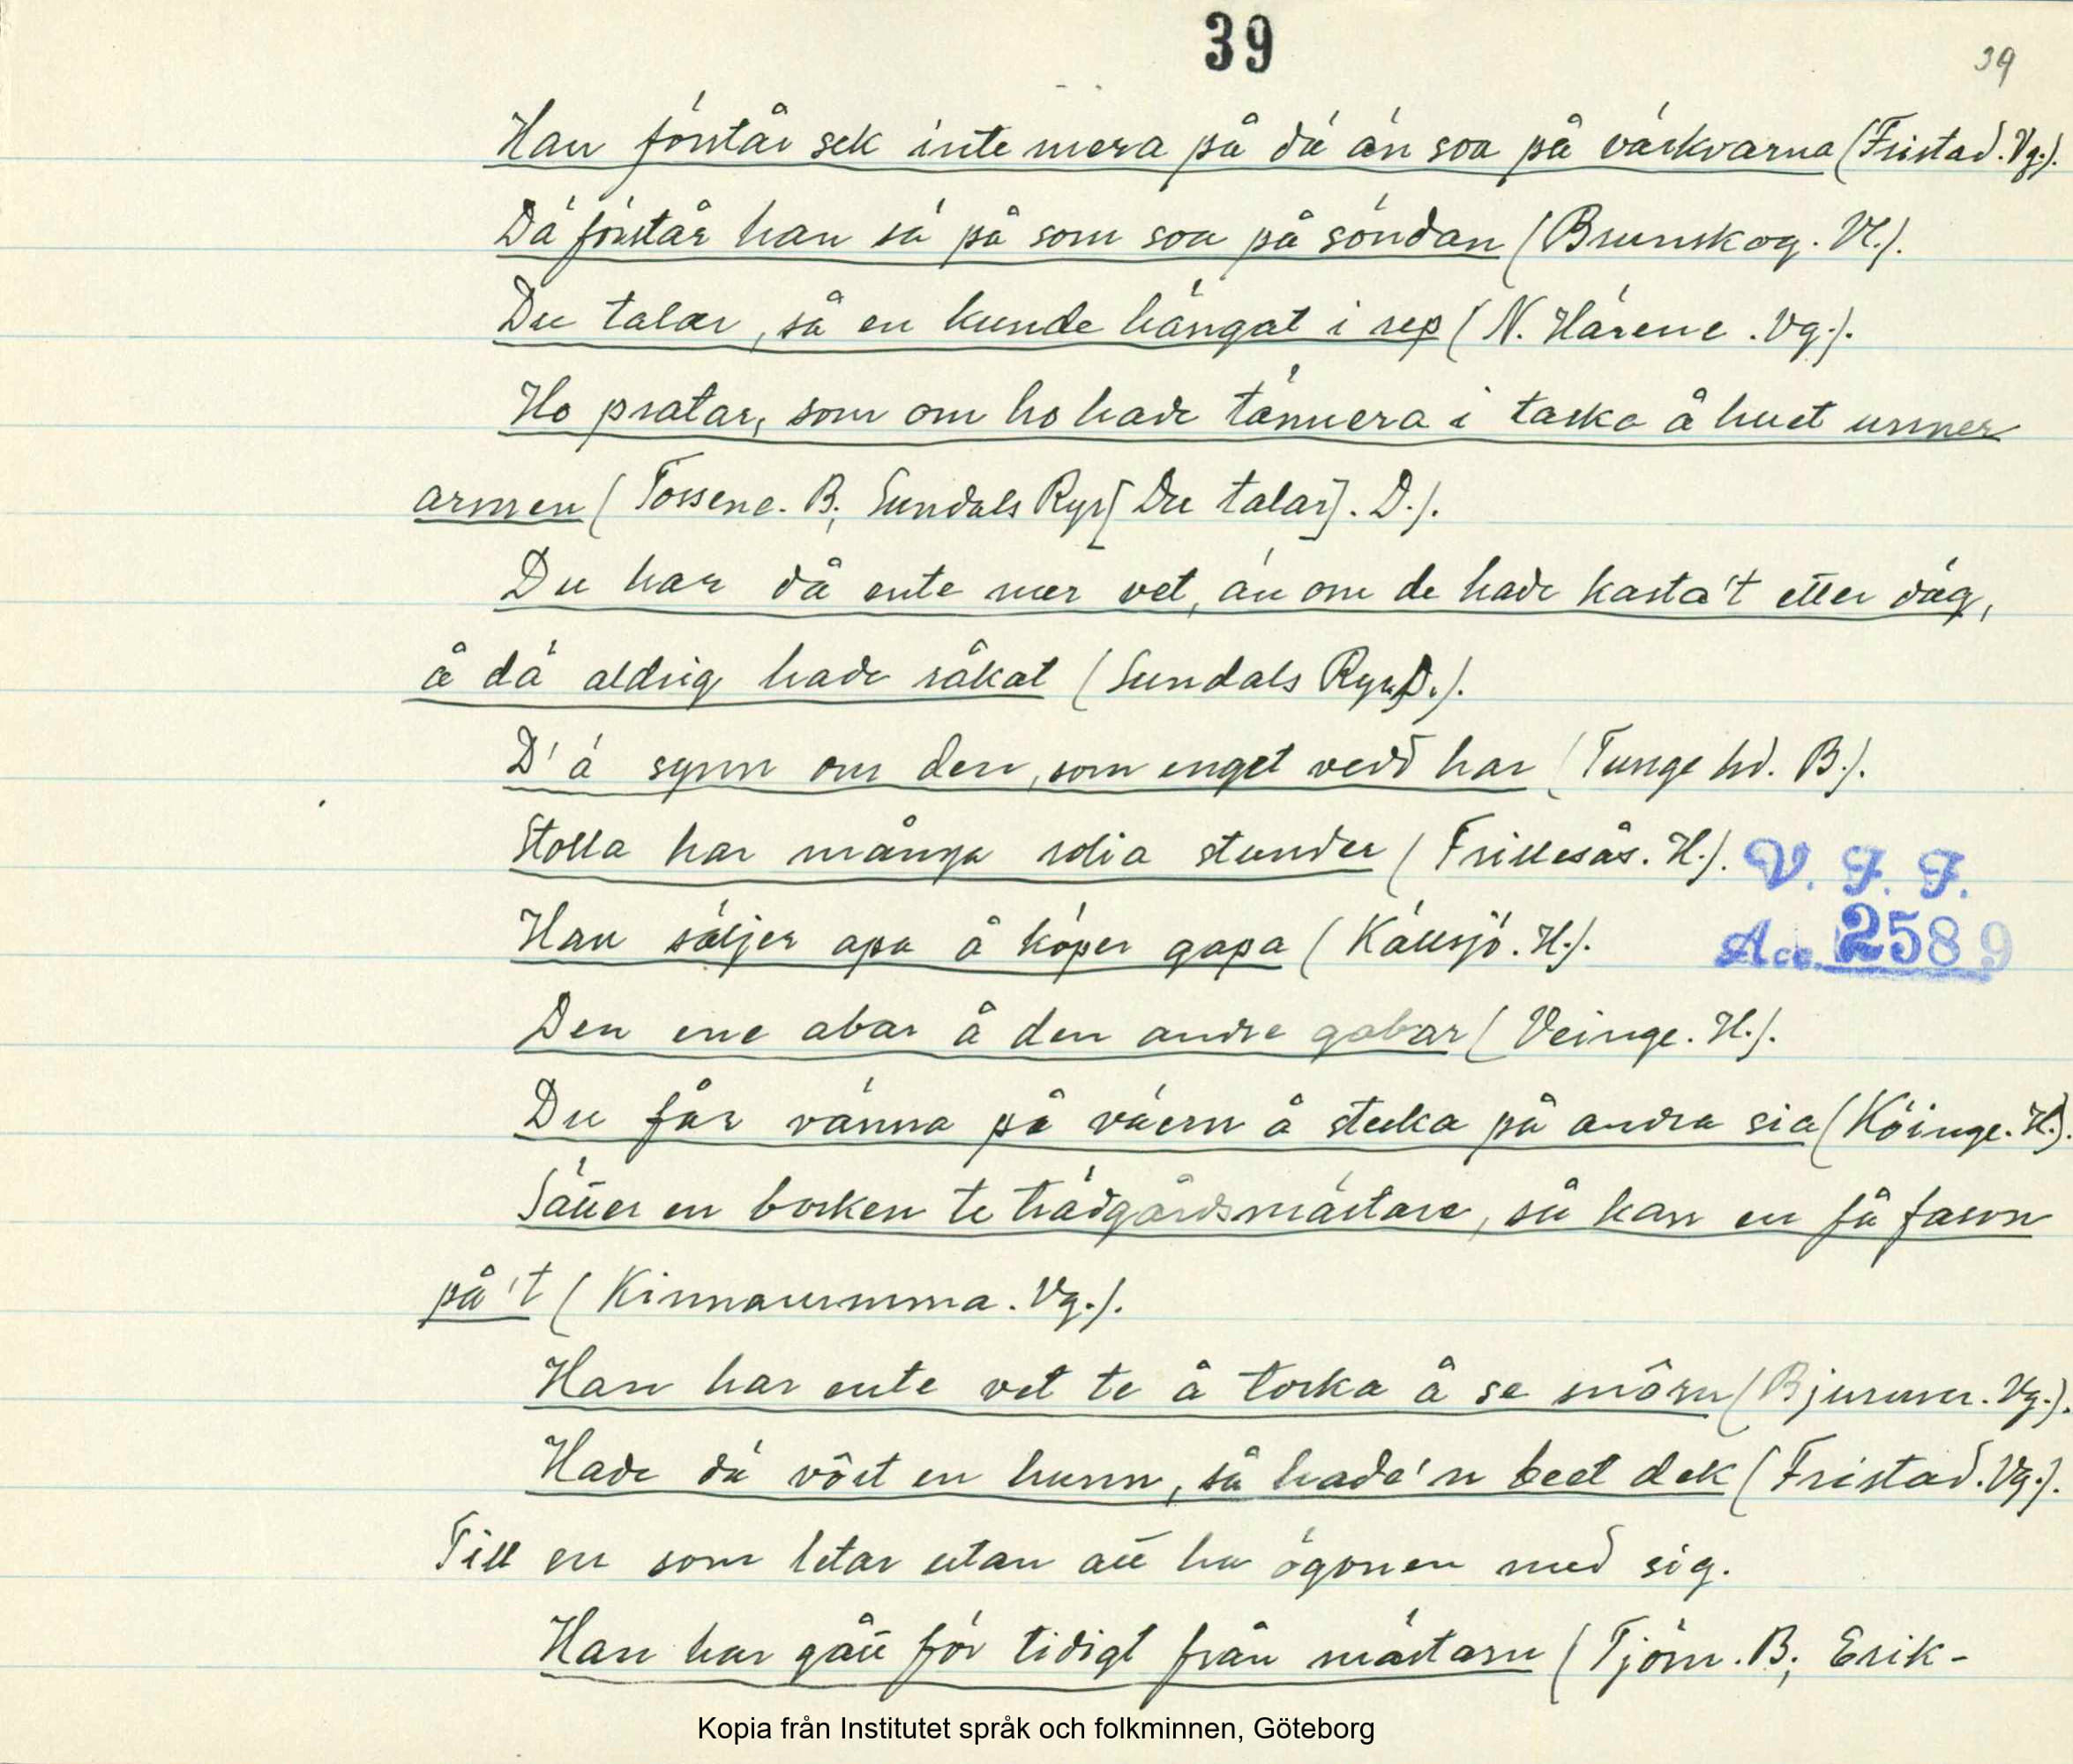 39
39
Han förstår sek inte mera på dä än soa på väskvarna (Fristad. Vg.).
Dä förstår han sä på som soa på söndan (Brunskog. Vl.).
Du talar, så en kunde hängat i rep (N. Härene. Vg.).
Ho pratar, som om ho hade tännera i taska å huet unner
armen (Tossene. B; Sundals Ryr [Du talar]. D.).
Du har då ente mer vet, än om de hade kasta't etter däg,
å dä aldrig hade råkat (Sundals Ryr. D.).
D'ä synn om den, som enget vedd har (Tunge hd. B.).
Stolla har många rolia stunder (Frillesås. H.).
V. F. F.
Han säljer apa å köper gapa (Källsjö. H.).
Acc. 2589
Den ene abar å den andre gabar (Veinge. H.).
Du får vänna på väern å steka på andra sia (Köinge. H.).
Sätter en bocken te trädgårdsmästare, så kan en få fason
på't (Kinnarumma. Vg.).
Han har ente vet te å torka å se snôrn (Bjurum. Vg.).
Hade dä vôrt en hunn, så hade'n beet dek (Fristad. Vg.).
Till en som letar utan att ha ögonen med sig.
Han har gått för tidigt från mästarn (Tjörn. B; Erik-
Kopia från Institutet språk och folkminnen, Göteborg